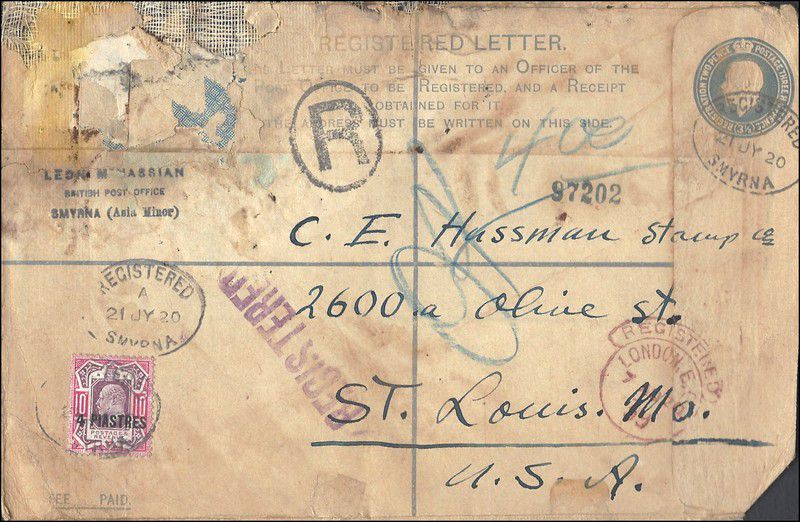 REGISTERED LETTER.
LETTER MUST BE GIVEN TO AN OFFICER OF THE
POST OFFICE TO BE REGISTERED, AND A RECEIPT
OBTAINED FOR IT.
THE ADDRESS MUST BE WRITTEN ON THIS SIDE.
R
REGISTERED
21 JY 20
SMYRNA
LEON
BRITISH POST OFFICE
SMYRNA (Asia Minor)
400
97202
C. E. Hassman Stamp Co
2600 a Olive St.
St. Louis. Mo.
U. S. A.
REGISTERED
A
21 JY 20
SMYRNA
REGISTERED
REGISTERED
LONDON. E.C.
10
10
4 PIASTRES
POSTAGE &
REVENUE
FEE PAID.